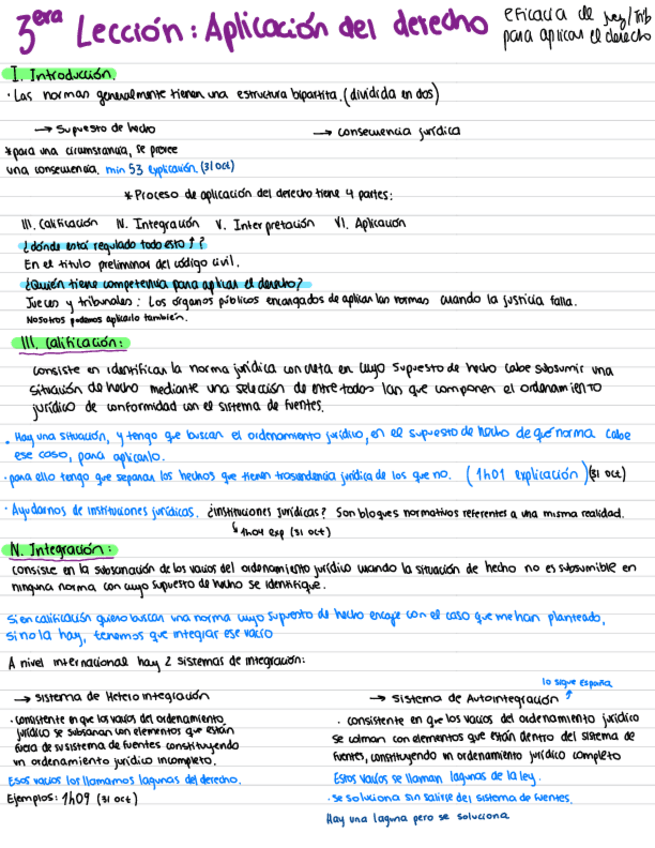 3era Lección: Aplicación del derecho
eficacia de juez/trib
para aplicar el derecho
I. Introducción.
· Las normas generalmente tienen una estructura bipartita. (dividida en dos)
→ Supuesto de hecho → consecuencia jurídica
*para una circunstancia, se prevee
una consecuencia. min 53 explicación. (31 oct)
* Proceso de aplicación del derecho tiene 4 partes:
III. Calificación IV. Integración V. Interpretación VI. Aplicación
¿dónde está regulado todo esto ↑?
En el título preliminar del código civil.
¿Quién tiene competencia para aplicar el derecho?
Jueces y tribunales: Los órganos públicos encargados de aplicar las normas cuando la justicia falla.
Nosotros podemos aplicarlo también.
III. Calificación:
consiste en identificar la norma jurídica concreta en cuyo supuesto de hecho cabe subsumir una
situación de hecho mediante una selección de entre todas las que componen el ordenamiento
jurídico de conformidad con el sistema de fuentes.
· Hay una situación, y tengo que buscar el ordenamiento jurídico, en el supuesto de hecho de qué norma cabe
ese caso, para aplicarlo.
· para ello tengo que separar los hechos que tienen trascendencia jurídica de los que no. (1h01 explicación) (31 oct)
· Ayudarnos de instituciones jurídicas. ¿instituciones jurídicas? Son bloques normativos referentes a una misma realidad.
↳ 1h04 exp (31 oct)
IV. Integración:
consiste en la subsanación de los vacíos del ordenamiento jurídico cuando la situación de hecho no es subsumible en
ninguna norma con cuyo supuesto de hecho se identifique.
Si en calificación quiero buscar una norma cuyo supuesto de hecho encaje con el caso que me han planteado,
si no la hay, tenemos que integrar ese vacío
A nivel internacional hay 2 sistemas de integración:
lo sigue España
→ sistema de Heterointegración → sistema de Autointegración ↑
· consistente en que los vacíos del ordenamiento
jurídico se subsanan con elementos que están
fuera de su sistema de fuentes constituyendo
un ordenamiento jurídico incompleto.
Esos vacíos los llamamos lagunas del derecho.
Ejemplos: 1h09 (31 oct)
· consistente en que los vacíos del ordenamiento jurídico
se colman con elementos que están dentro del sistema de
fuentes, constituyendo un ordenamiento jurídico completo
Estos vacíos se llaman lagunas de la ley.
· se soluciona sin salirse del sistema de fuentes.
Hay una laguna pero se soluciona